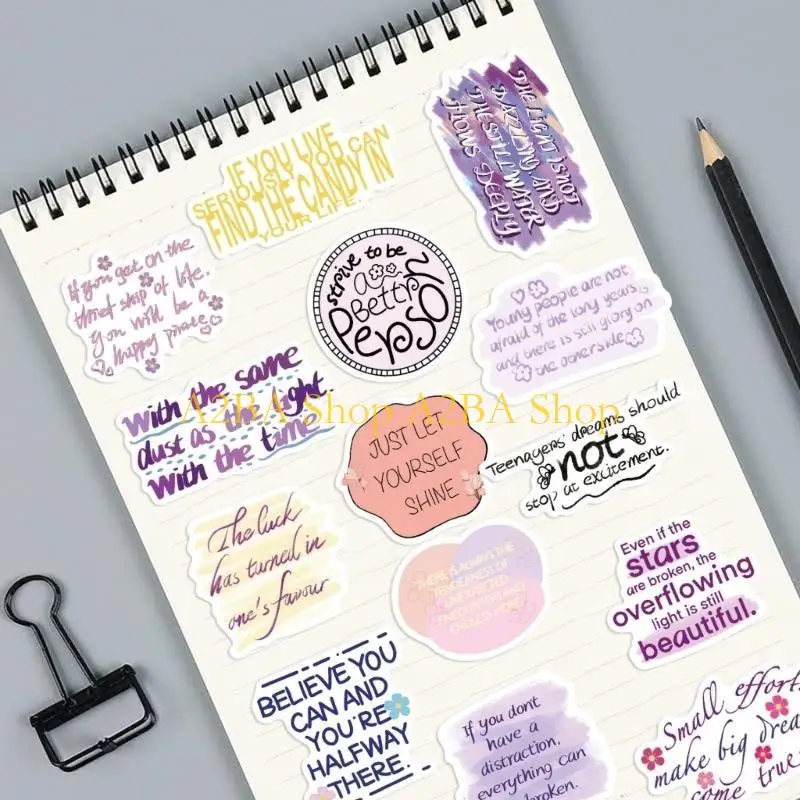 IF YOU LIVE
SERIOUSLY YOU CAN
FIND THE CANDY IN
YOUR LIFE.
THE LIGHT IS NOT
DAZZLING AND
THE STILL WATER
FLOWS DEEPLY.
If you get on the
thief ship of life.
you will be a
happy pirate
strive to be
a
Betty
Pepson
Young people are not
afraid of the long years
and there is still glory on
the other side
With the same
dust as the light
with the time
A2BA Shop A2BA Shop
JUST LET
YOURSELF
SHINE
Teenagers' dreams should
not
stop at excitement.
The luck
has turned in
one's favour
THERE IS ALWAYS THE
TENDERNESS OF
UNEXPECTED
ENCOUNTERS AND
ENDLESS HOPE
Even if the
stars
are broken, the
overflowing
light is still
beautiful.
BELIEVE YOU
CAN AND
YOU'RE
HALFWAY
THERE.
If you dont
have a
distraction,
everything can
broken.
Small effort
make big drea
come true.